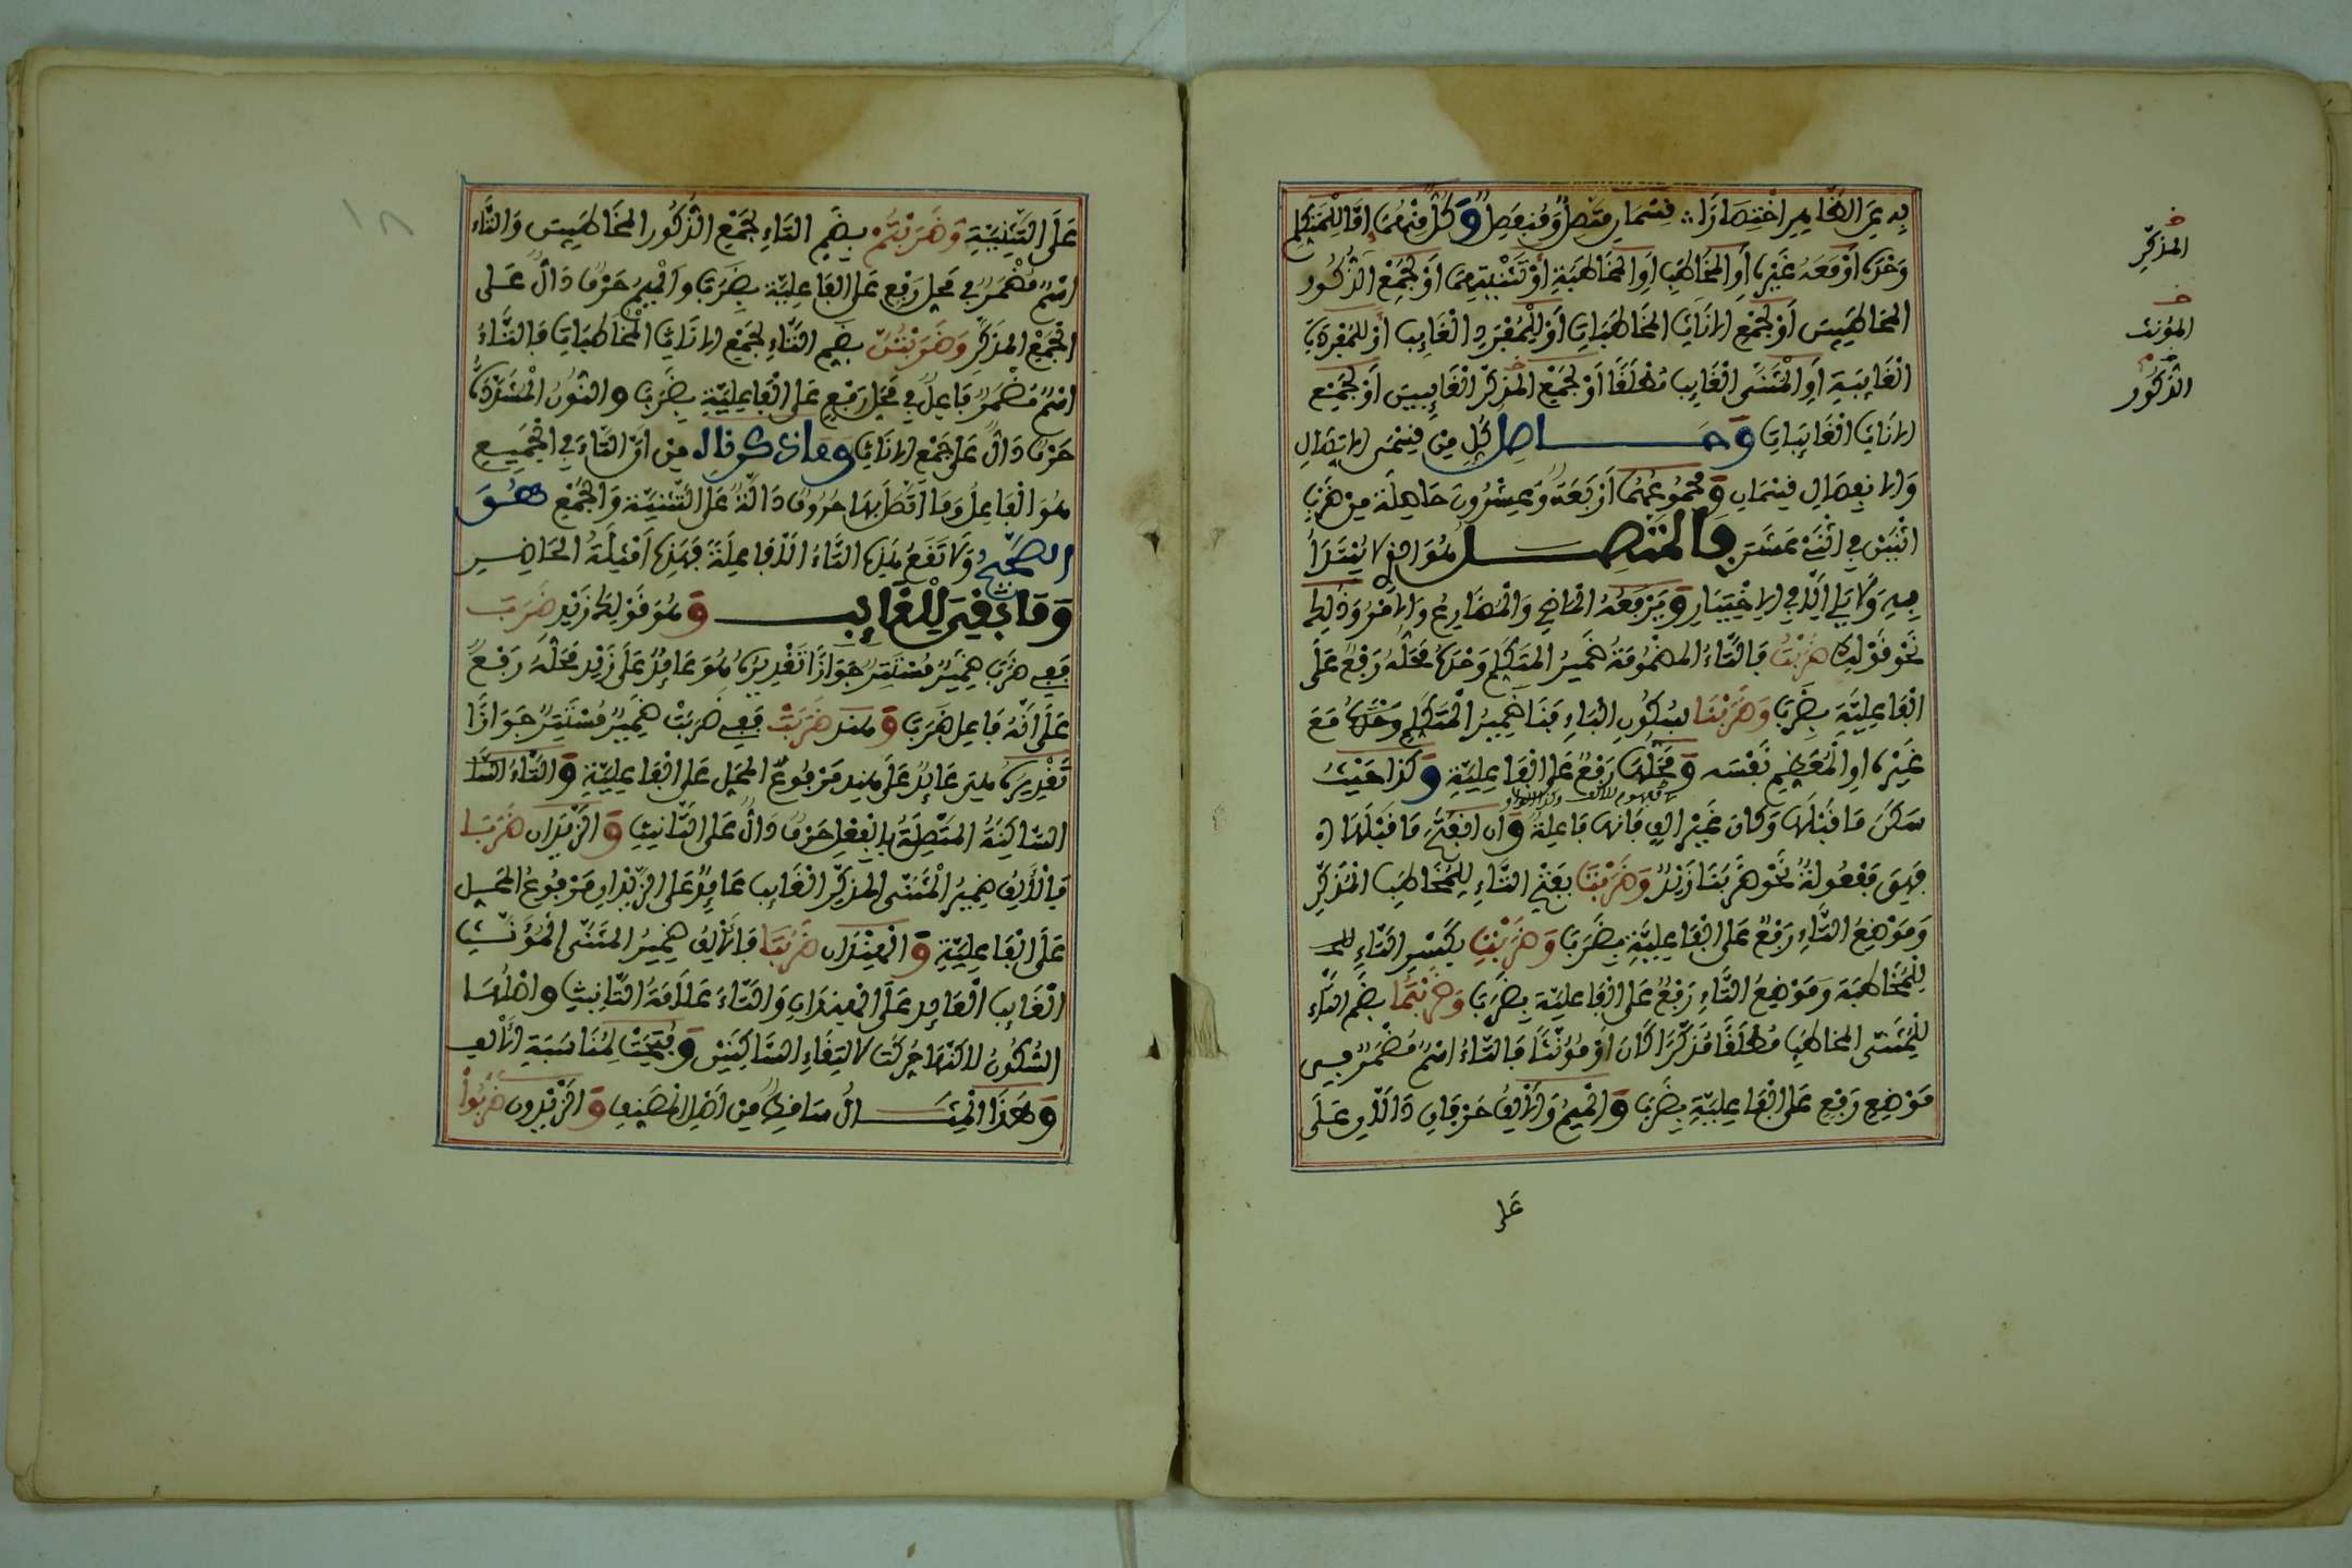 به عن الظاهر اختصارا ؞ قسمان متصل ومنفصل وكل منهما اما للمتكلم
وحده او معه غيره او المخاطب او المخاطبة او تثنيتهما او لجمع الذكور
المخاطبين او لجمع الاناث المخاطبات او للمفرد الغايب او للمفردة
الغايبة او المثنى الغايب مطلقا او لجمع المذكر الغايبين او لجمع
الاناث الغايبات وحاصل كل من قسمى الاتصال
والانفصال قسمان ومجموعهما اربعة وعشرون حاصلة من ضرب
اثنين في اثنى عشر فالمتصل هو الذي لا يبتدأ
به ولا يلي الا في الاختيار ويرفعه الماضي والمضارع والامر وذلك
نحو قولك ضربت فالتاء المضمومة ضمير المتكلم وحده محله رفع على
الفاعلية بضرب وضربنا بسكون الباء فنا ضمير المتكلم وحده مع
غيره او المعظم نفسه ومحلها رفع على الفاعلية وكذا حيث
سكن ما قبلها وكان غير الف فانها فاعلة وان انفتح ما قبلها
فهي مفعولة نحو ضربنا زيد وضربت بفتح التاء للمخاطب المذكر
وموضع التاء رفع على الفاعلية بضرب وضربت بكسر التاء
للمخاطبة وموضع التاء رفع على الفاعلية بضرب وضربتما بضم التاء
للمثنى المخاطب مطلقا مذكرا كان او مؤنثا فالتاء اسم مضمر في
موضع رفع على الفاعلية بضرب والميم والالف حرفان دالان على
على
المذكر
المؤنث
الذكور
على التثنية وضربتم بضم التاء لجمع الذكور المخاطبين والتاء
اسم مضمر في محل رفع على الفاعلية بضرب والميم حرف دال على
الجمع المذكر وضربتن بضم التاء لجمع الاناث المخاطبات فالتاء
اسم مضمر فاعل في محل رفع على الفاعلية بضرب والنون المشددة
حرف دال على جمع الاناث وما ذكر قال من ان التاء في الجميع
هو الفاعل وما اتصل بها حروف دالة على التثنية والجمع هو
الصحيح ولا تقع هذه التاء الا فاعلة فهذه امثلة الحاضر
وما بقى للغايب وهو قولك زيد ضرب
ففي ضرب ضمير مستتر جوازا تقديره هو عايد على زيد محله رفع
على انه فاعل ضرب وهند ضربت ففي ضربت ضمير مستتر جوازا
تقديره هي عايد على هند مرفوع المحل على الفاعلية والتاء
الساكنة المتصلة بالفعل حرف دال على التانيث والزيدان ضربا
فالالف ضمير المثنى المذكر الغايب عايد على الزيدان مرفوع المحل
على الفاعلية والهندان ضربتا فالالف ضمير المثنى المؤنث
الغايب العايد على الهندان والتاء علامة التانيث واصلها
السكون لاكنها حركت لالتقاء الساكنين وفتحت لمناسبة الالف
وهذا المثال ساقط من اصل المصنف والزيدون ضربوا